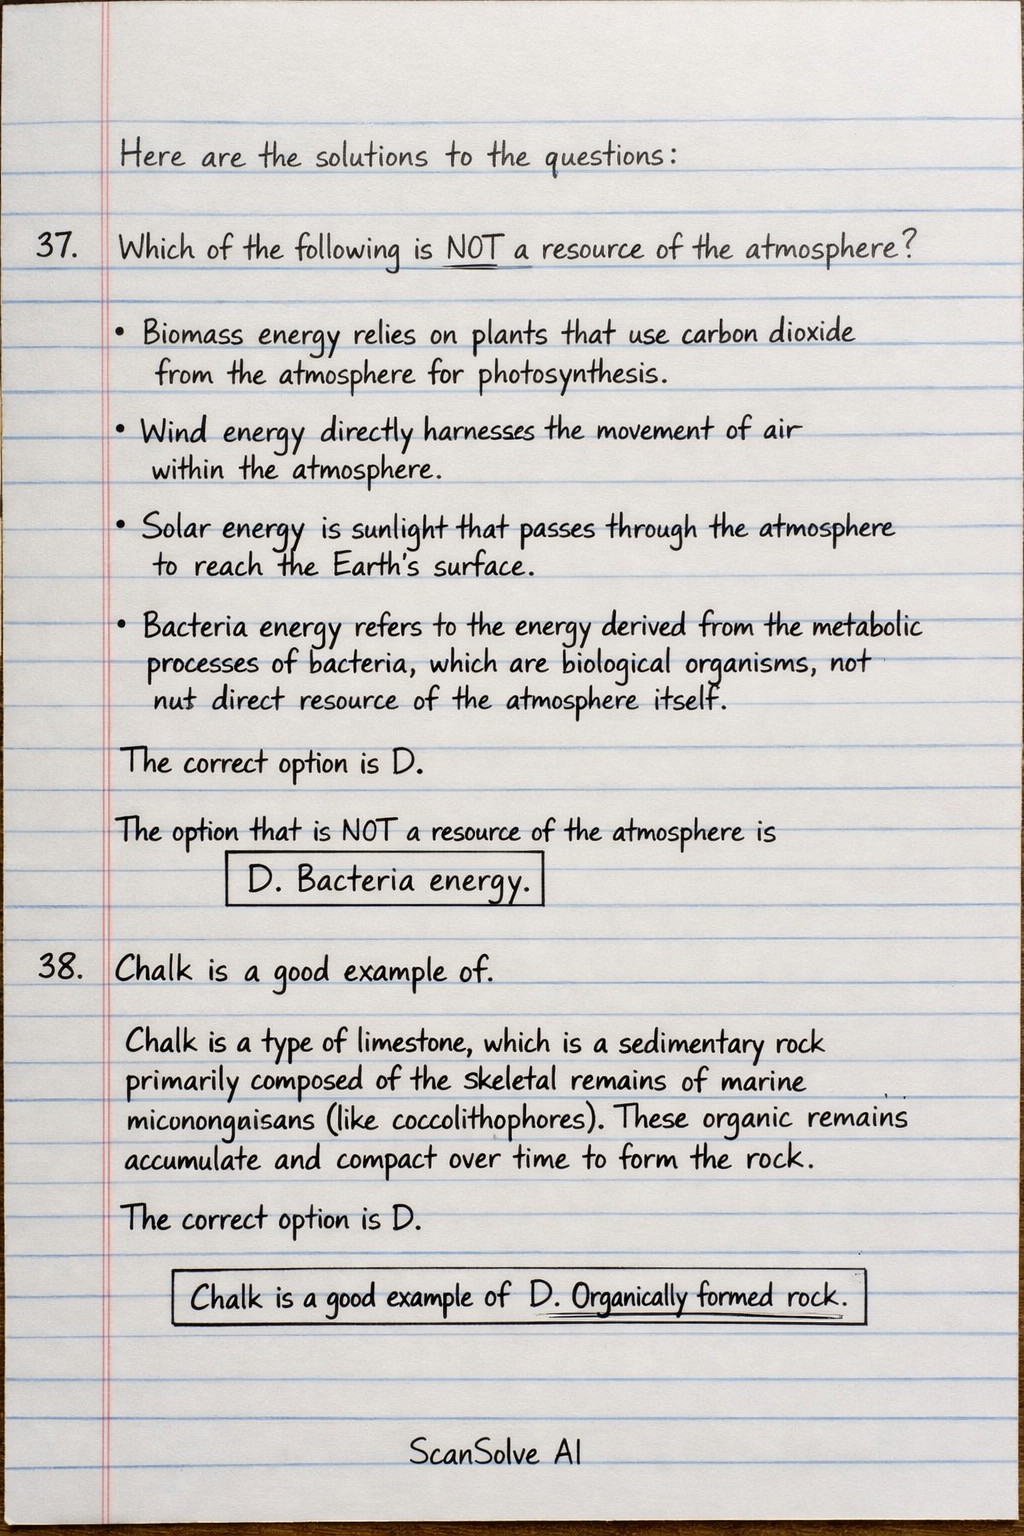 Here are the solutions to the questions:
37. Which of the following is NOT a resource of the atmosphere?
• Biomass energy relies on plants that use carbon dioxide
from the atmosphere for photosynthesis.
• Wind energy directly harnesses the movement of air
within the atmosphere.
• Solar energy is sunlight that passes through the atmosphere
to reach the Earth's surface.
• Bacteria energy refers to the energy derived from the metabolic
processes of bacteria, which are biological organisms, not
nut direct resource of the atmosphere itself.
The correct option is D.
The option that is NOT a resource of the atmosphere is
D. Bacteria energy.
38. Chalk is a good example of.
Chalk is a type of limestone, which is a sedimentary rock
primarily composed of the skeletal remains of marine
miconongaisans (like coccolithophores). These organic remains
accumulate and compact over time to form the rock.
The correct option is D.
Chalk is a good example of D. Organically formed rock.
ScanSolve AI